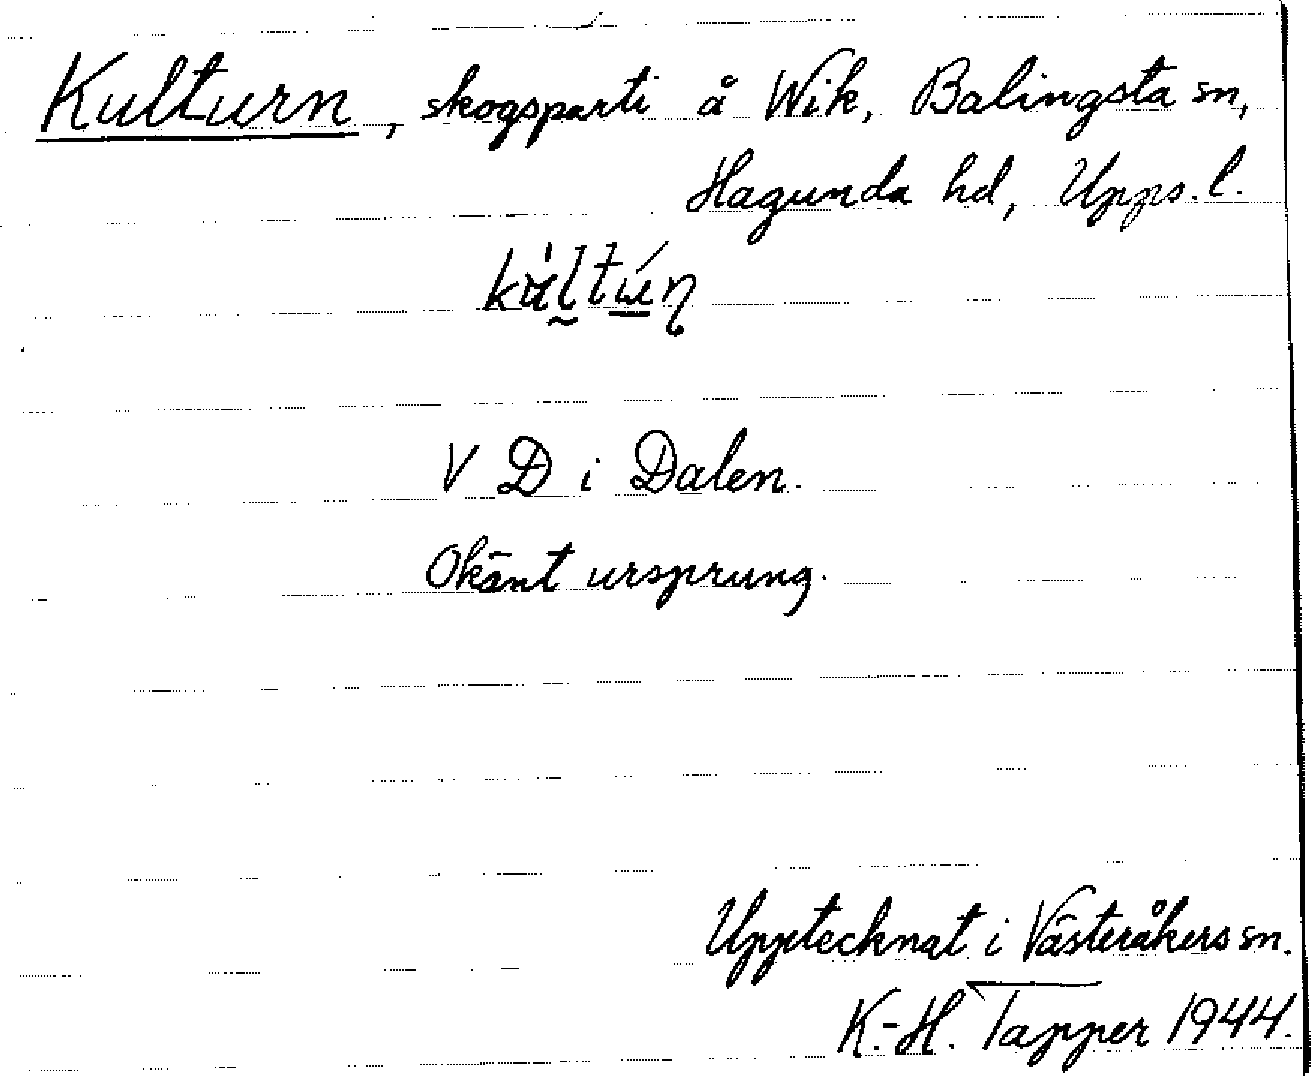 Kulturn, skogsparti å Wik, Balingsta sn,
Hagunda hd, Upps. l.
V D i Dalen.
Okänt ursprung.
Upptecknat i Västeråkers sn.
K.-H. Tapper 1944.